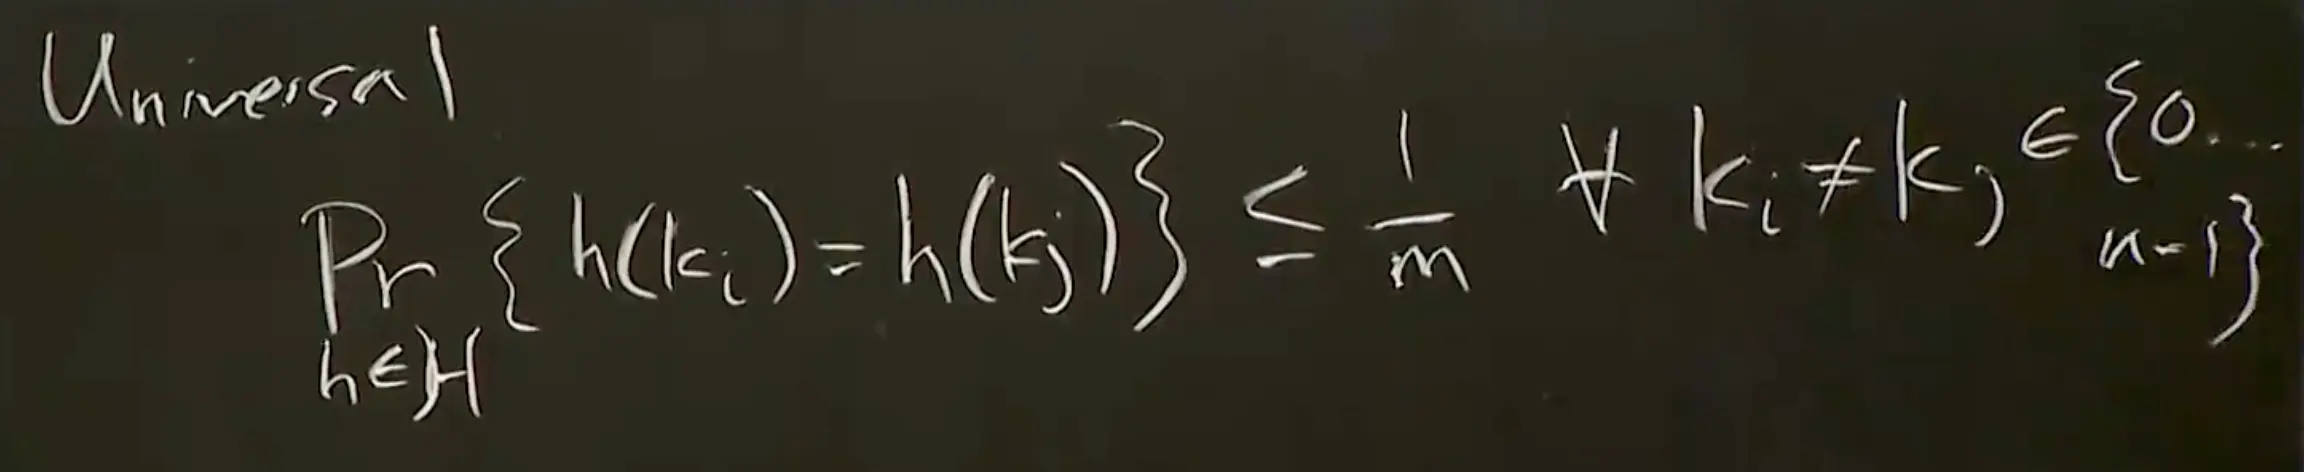 Universal
Pr {h(ki) = h(kj)} ≤ 1/m ∀ ki ≠ kj ∈ {0...
h∈H
n-1}